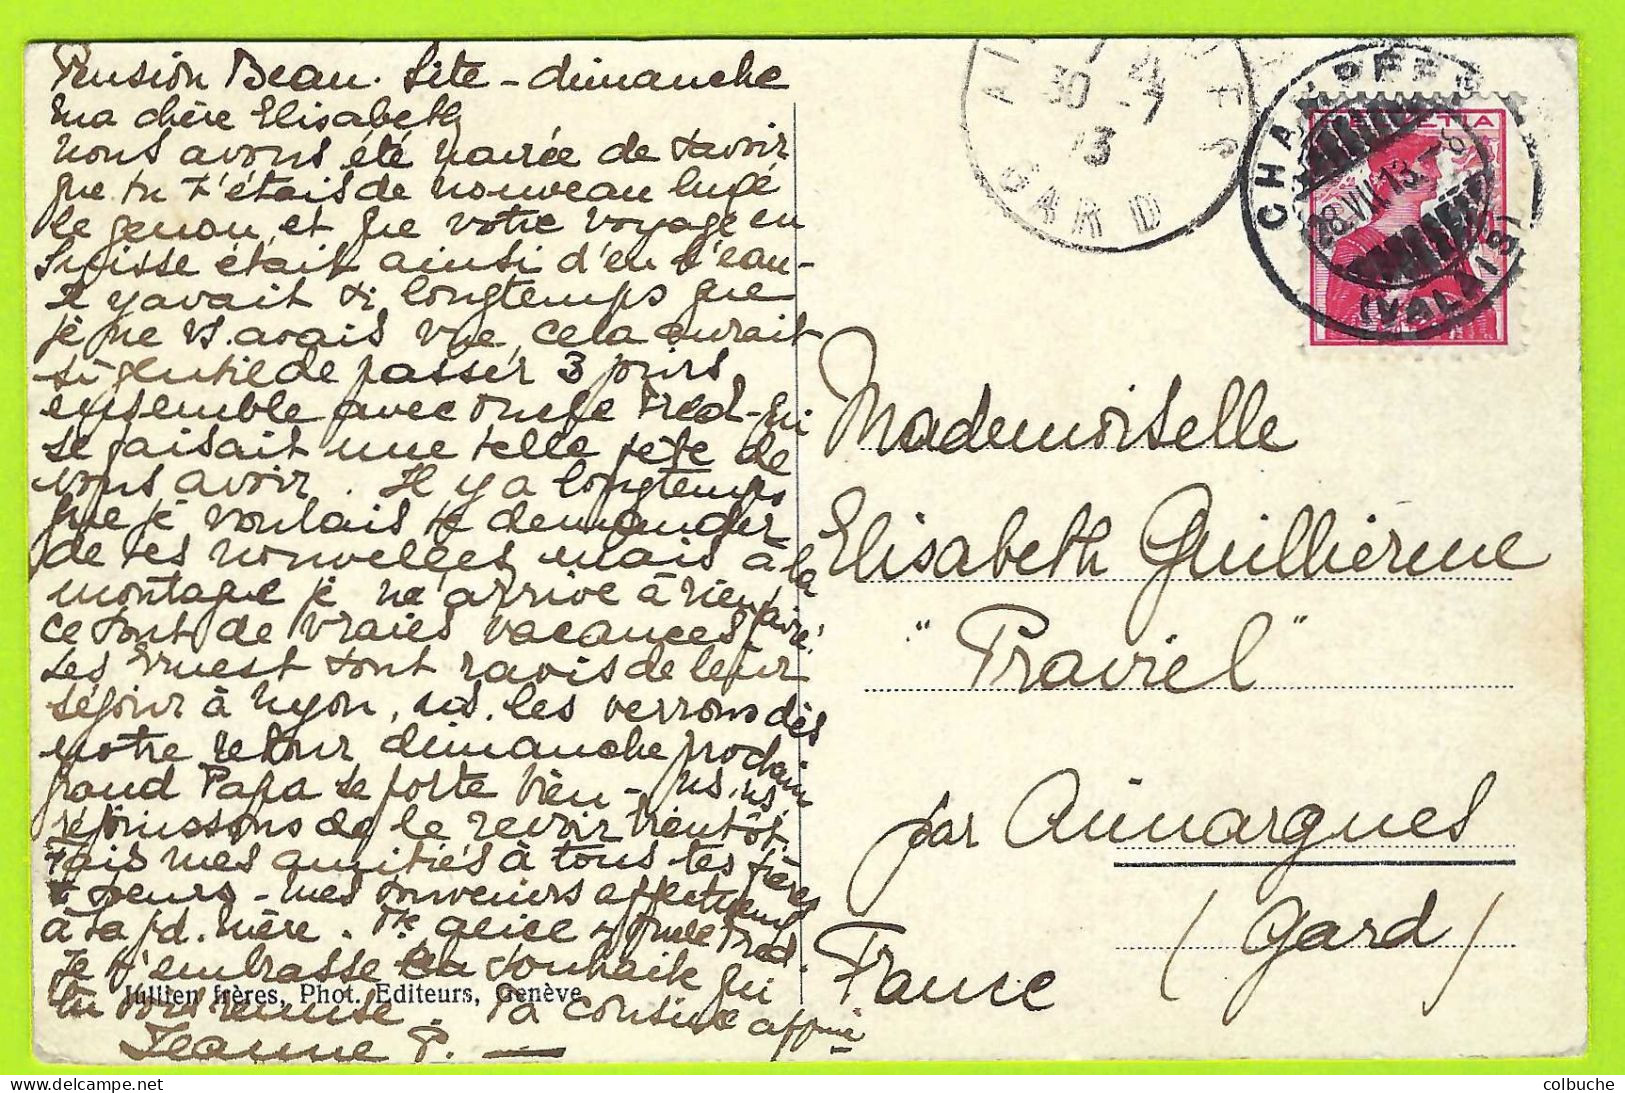 Pension Beau-Site - dimanche
Ma chère Elisabeth
Nous avons été navrée de savoir
que tu t'étais de nouveau luxé
le genou, et que votre voyage en
Suisse était ainsi d'en l'eau -
Il y avait si longtemps que
je ne vs. avais vue, cela aurait
si gentil de passer 3 jours
ensemble avec oncle Fred - qui
se faisait une telle fête de
vous avoir. Il y a longtemps
que je voulais te demander
de tes nouvelles mais à la
montagne je ne arrive à rien faire!
ce sont de vraies vacances!
Les Ernest sont ravis de leur
séjour à Nyon, ns. les verrons dès
notre retour dimanche prochain
grand Papa se porte bien - ns. ns
réjouissons de le revoir bientôt.
Fais mes amitiés à tous tes frères
& soeurs - mes souvenirs affectueux
à ta gd. Mère. Tte Alice & oncle Fred.
Je t'embrasse et te souhaite
tu sois remise. Ta cousine affmée
Jeanne P. —
Jullien frères, Phot. Editeurs, Genève
Mademoiselle
Elisabeth Guillierme
"Praviel"
par Aimargues
(Gard)
France
30 - 7
13
GARD
HELVETIA
28.VII.13. - 8
(VALAIS)
colbuche